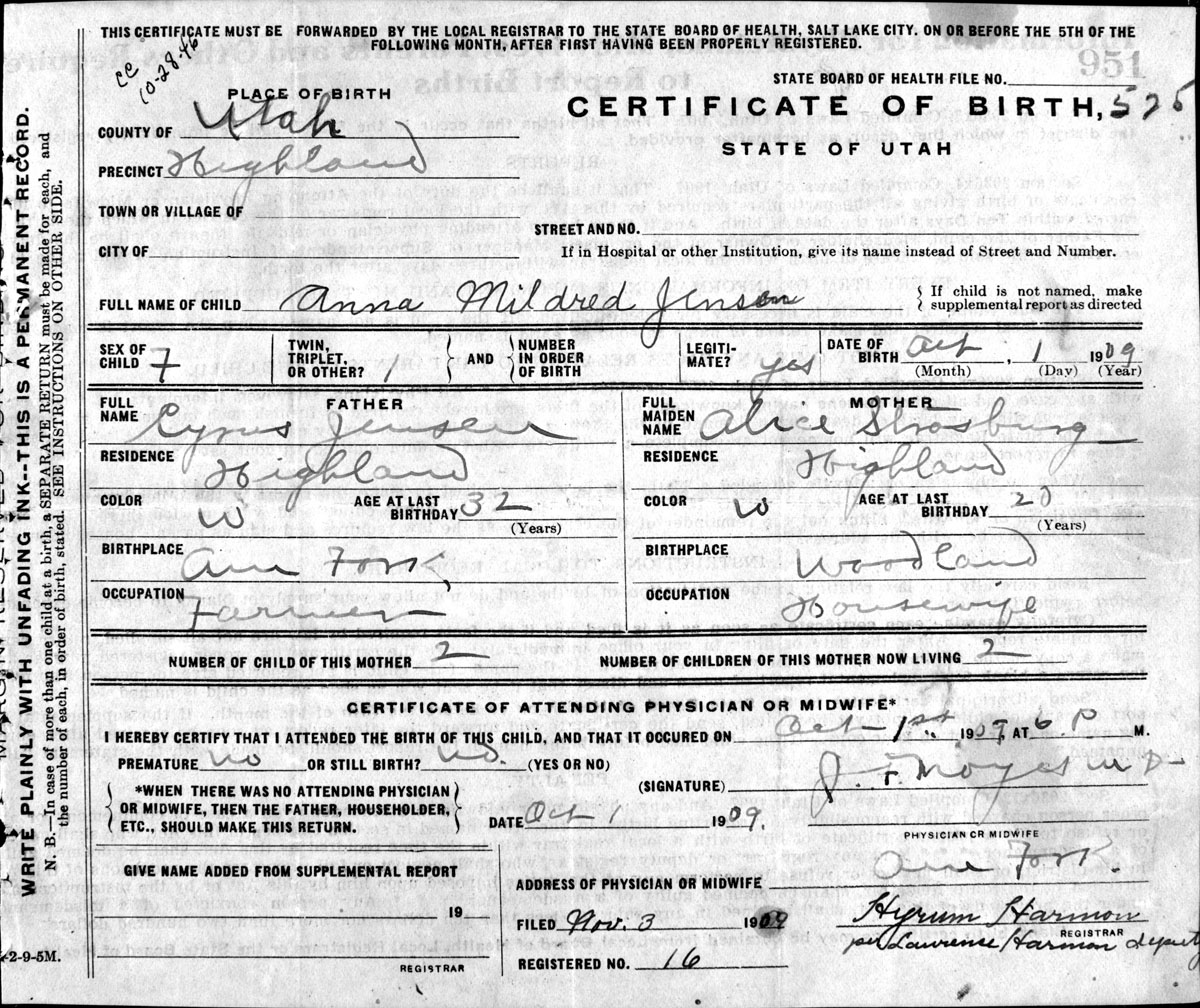 THIS CERTIFICATE MUST BE FORWARDED BY THE LOCAL REGISTRAR TO THE STATE BOARD OF HEALTH, SALT LAKE CITY. ON OR BEFORE THE 5TH OF THE
FOLLOWING MONTH, AFTER FIRST HAVING BEEN PROPERLY REGISTERED.
CC
10-28-46
951
STATE BOARD OF HEALTH FILE NO.
PLACE OF BIRTH
CERTIFICATE OF BIRTH, 525
STATE OF UTAH
COUNTY OF Utah
PRECINCT Highland
TOWN OR VILLAGE OF
STREET AND NO.
CITY OF
If in Hospital or other Institution, give its name instead of Street and Number.
FULL NAME OF CHILD Anna Mildred Jensen
{ If child is not named, make
supplemental report as directed
SEX OF CHILD F
TWIN, TRIPLET, OR OTHER? 1 } AND { NUMBER IN ORDER OF BIRTH
LEGITI-MATE? yes
DATE OF BIRTH Oct, 1 1909
(Month) (Day) (Year)
FATHER
FULL NAME Cyrus Jensen
RESIDENCE Highland
COLOR W AGE AT LAST BIRTHDAY 32
(Years)
BIRTHPLACE Am Fork
OCCUPATION Farmer
MOTHER
FULL MAIDEN NAME Alice Strasburg
RESIDENCE Highland
COLOR W AGE AT LAST BIRTHDAY 20
(Years)
BIRTHPLACE Woodland
OCCUPATION Housewife
NUMBER OF CHILD OF THIS MOTHER 2 NUMBER OF CHILDREN OF THIS MOTHER NOW LIVING 2
CERTIFICATE OF ATTENDING PHYSICIAN OR MIDWIFE*
I HEREBY CERTIFY THAT I ATTENDED THE BIRTH OF THIS CHILD, AND THAT IT OCCURED ON Oct 1st 1909, AT 6 P M.
PREMATURE no OR STILL BIRTH? no. (YES OR NO)
(SIGNATURE) J. F. Noyes M D
PHYSICIAN OR MIDWIFE
*WHEN THERE WAS NO ATTENDING PHYSICIAN
OR MIDWIFE, THEN THE FATHER, HOUSEHOLDER,
ETC., SHOULD MAKE THIS RETURN.
DATE Oct 1 1909.
ADDRESS OF PHYSICIAN OR MIDWIFE Am Fork
GIVE NAME ADDED FROM SUPPLEMENTAL REPORT
19
REGISTRAR
FILED Nov. 3 1909
Hyrum Harmon
REGISTRAR
per Lawrence Harmon deputy
REGISTERED NO. 16
2-9-5M.
WRITE PLAINLY WITH UNFADING INK--THIS IS A PERMANENT RECORD.
N. B.—In case of more than one child at a birth, a SEPARATE RETURN must be made for each, and
the number of each, in order of birth, stated. SEE INSTRUCTIONS ON OTHER SIDE.